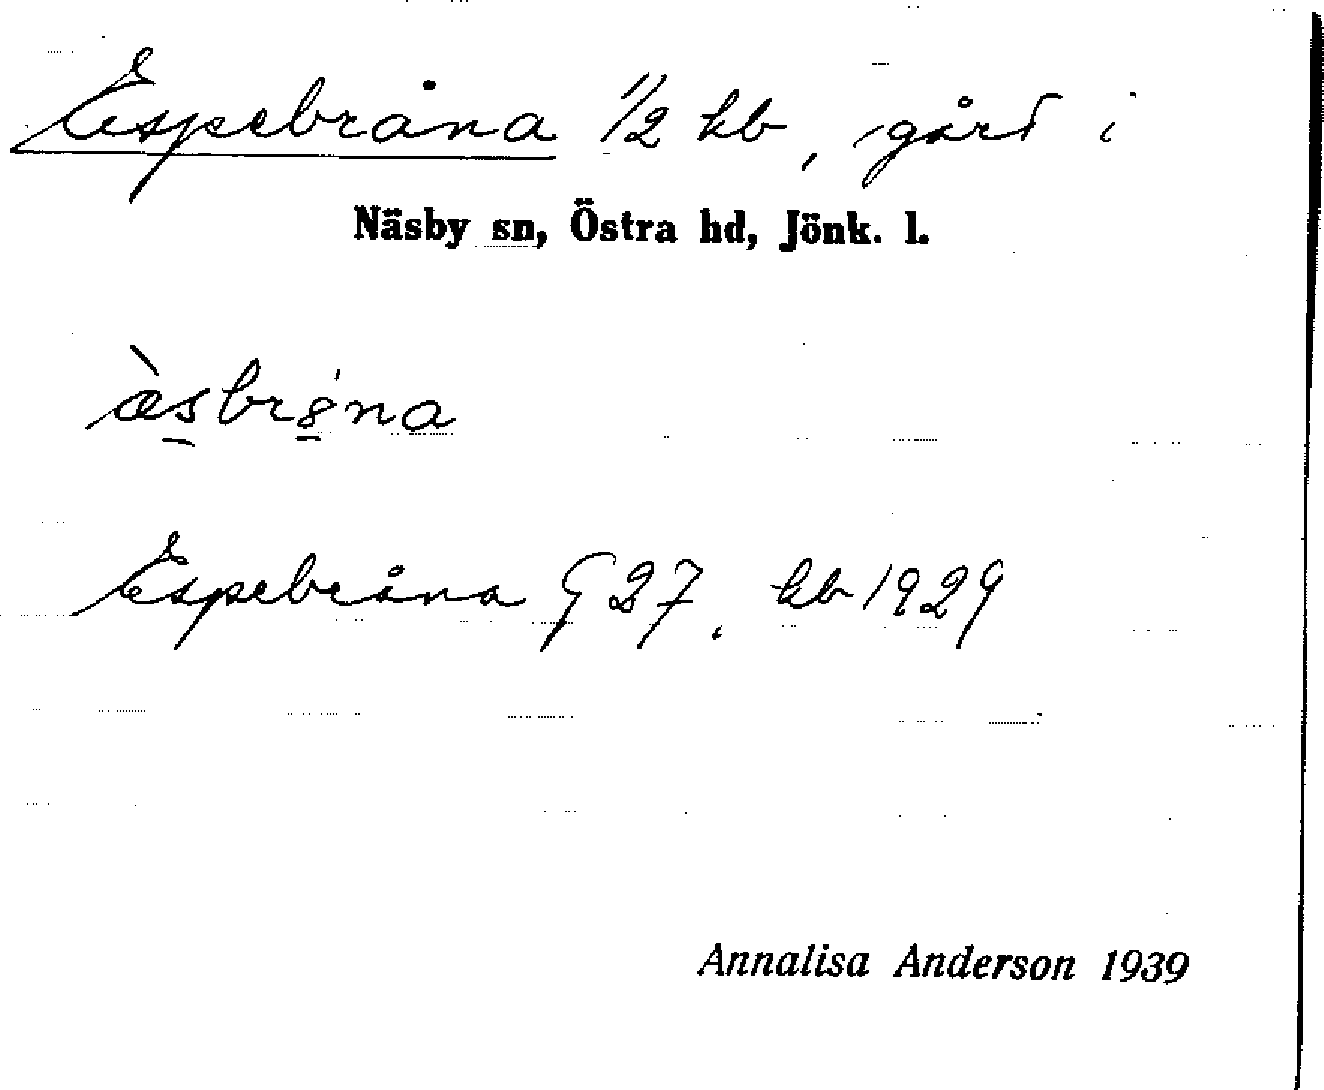 Espebråna 1/2 hb, gård i
Näsby sn, Östra hd, Jönk. l.
Espebråna G 27. hb 1929
Annalisa Anderson 1939